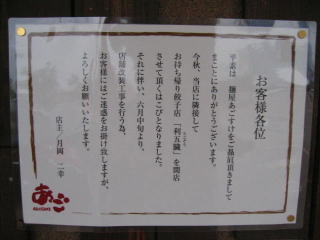 お客様各位
平素は　麺屋あごすけをご贔屓頂きまして
まことにありがとうございます。
今秋、当店に隣接して
お持ち帰り餃子店「利五臓」を開店
させて頂くはこびとなりました。
それに伴い、六月中旬より、
店舗改装工事を行う為、
お客様にはご迷惑をお掛け致しますが、
よろしくお願いいたします。
店主／月岡　二幸
あご